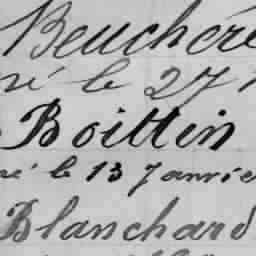 Beuchere
né le 27
Boittin
né le 13 Janvie
Blanchard